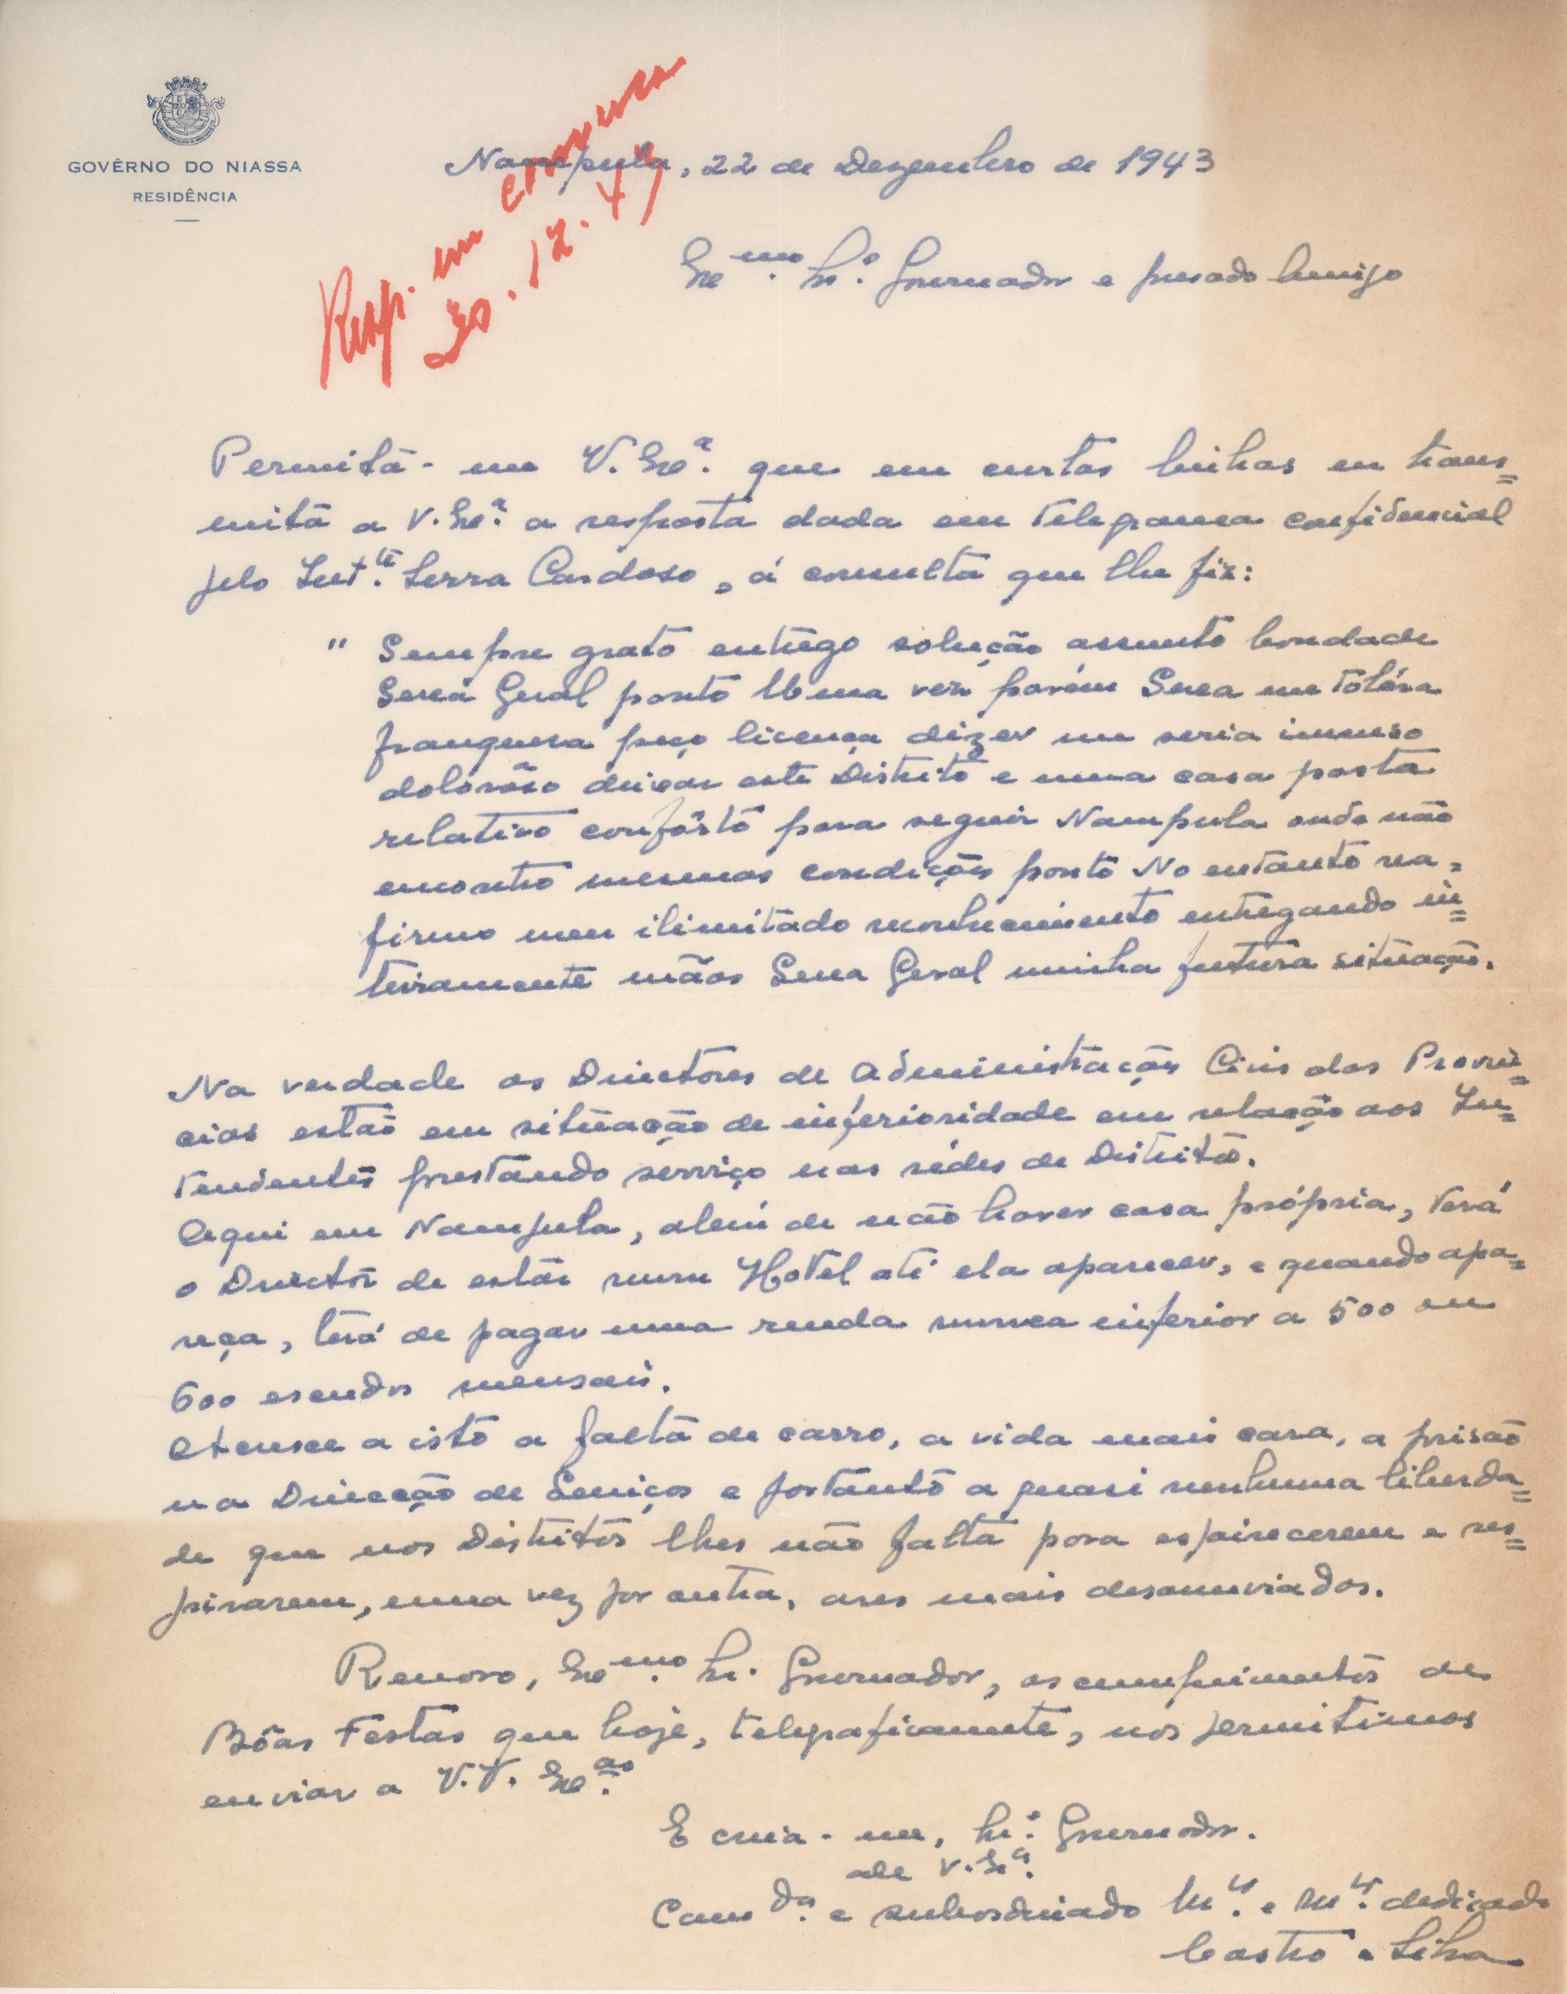 GOVÊRNO DO NIASSA
RESIDÊNCIA
Resp. em
30.12.43
Nampula, 22 de Dezembro de 1943
Exmo. Sr. Governador e presado Amigo
Permita-me V. Exa. que em curtas linhas eu trans=
mita a V. Exa. a resposta dada em telegrama confidencial
pelo Intte. Serra Cardoso, á consulta que lhe fiz:
" Sempre grato entrego solução assunto bondade
Sexa Geral ponto Uma vez porém Sexa me tolera
franqueza peço licença dizer me seria imenso
doloroso deixar este Distrito e uma casa posta
relativo confôrto para seguir Nampula onde não
encontro mesmas condições ponto No entanto rea=
firmo meu ilimitado reconhecimento entregando in=
teiramente mãos Sexa Geral minha futura situação.
Na verdade os Directores de Administração Civis das Provín=
cias estão em situação de inferioridade em relação aos In=
tendentes prestando serviço nas sédes de Distrito.
Aqui em Nampula, além de não haver casa própria, terá
o Director de estar num Hotel até ela aparecer, e quando apa=
reça, terá de pagar uma renda nunca inferior a 500 ou
600 escudos mensais.
Acresce a isto a falta de carro, a vida mais cara, a prisão
na Direcção de Serviços e portanto a quasi nenhuma liberda=
de que nos Distritos lhes não falta para espairecerem e res=
pirarem, uma vez por outra, ares mais desanuviados.
Renovo, Exmo. Sr. Governador, os cumprimentos de
Bôas Festas que hoje, telegraficamente, nos permitimos
enviar a V.V. Exas.
E creia-me, Sr. Governador.
de V. Exa.
Camda. e subordinado Mto. e Mto. dedicado
Castro e Silva